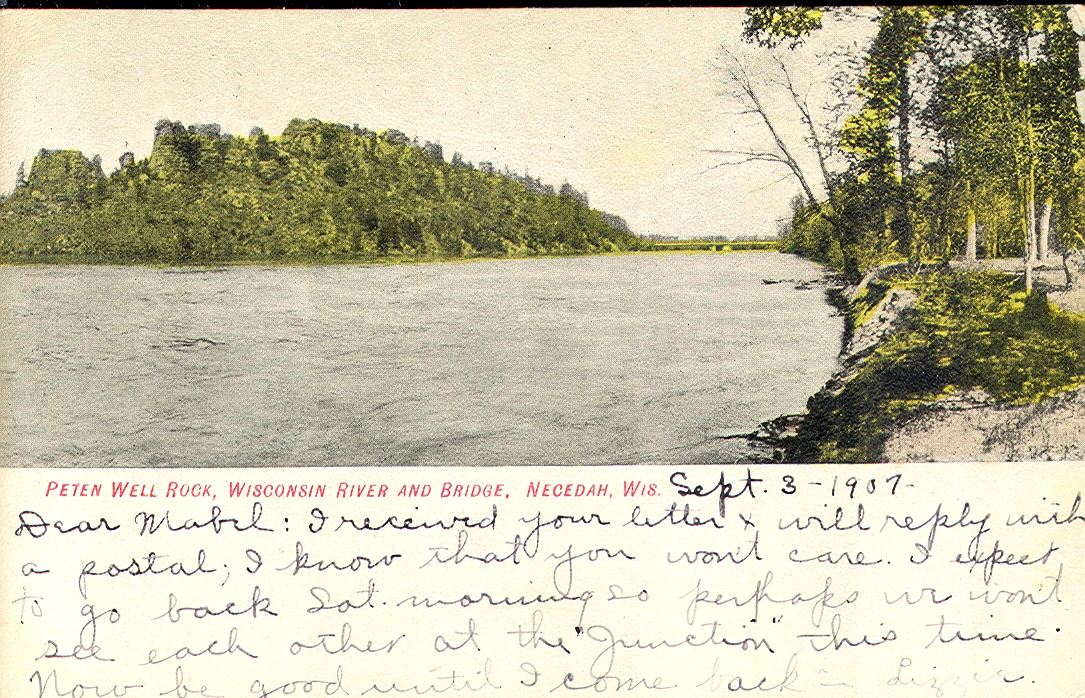 PETEN WELL ROCK, WISCONSIN RIVER AND BRIDGE, NECEDAH, WIS. Sept. 3 - 1907 -
Dear Mabel: I received your letter & will reply with
a postal; I know that you won't care. I expect
to go back Sat. morning so perhaps we won't
see each other at the "Junction" this time.
Now be good until I come back - Lizzie.